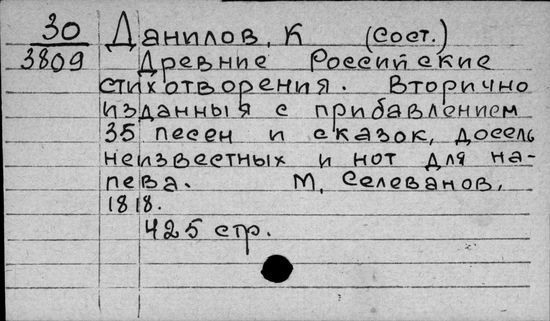 30 Данилов, К (сост.)
3809 Древние Российские
стихотворения. Вторично
изданныя с прибавлением
35 песен и сказок, досель
неизвестных и нот для на-
пева. М, Селеванов,
1818.
425 стр.